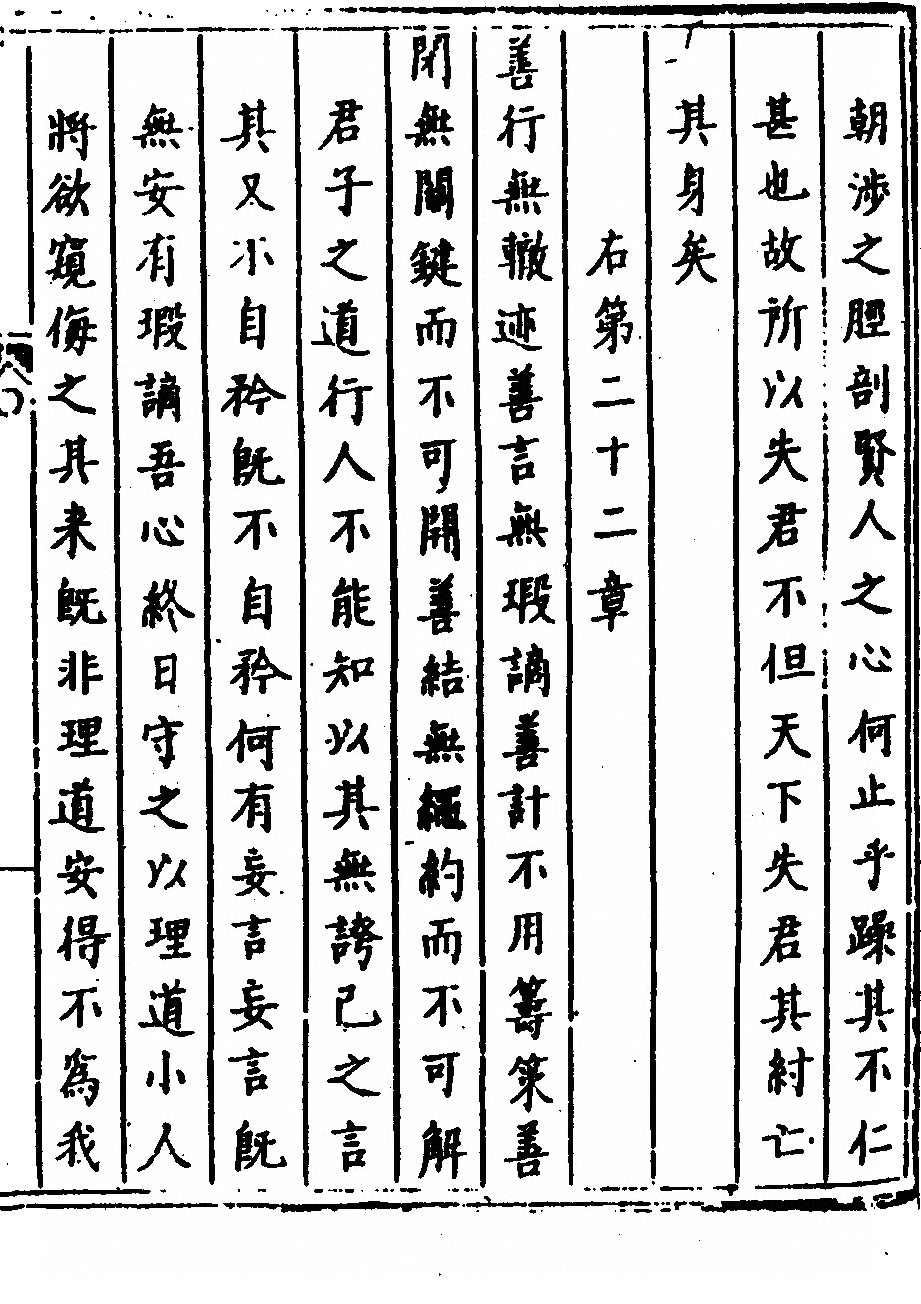 朝涉之脛剖賢人之心何止乎躁其不仁
甚也故所以失君不但天下失君其紂亡
其身矣
右第二十二章
善行無轍迹善言無瑕謫善計不用籌策善
閉無關鍵而不可開善結無繩約而不可解
君子之道行人不能知以其無誇己之言
其又不自矜既不自矜何有妄言妄言既
無安有瑕謫吾心終日守之以理道小人
將欲窺侮之其来既非理道安得不為我